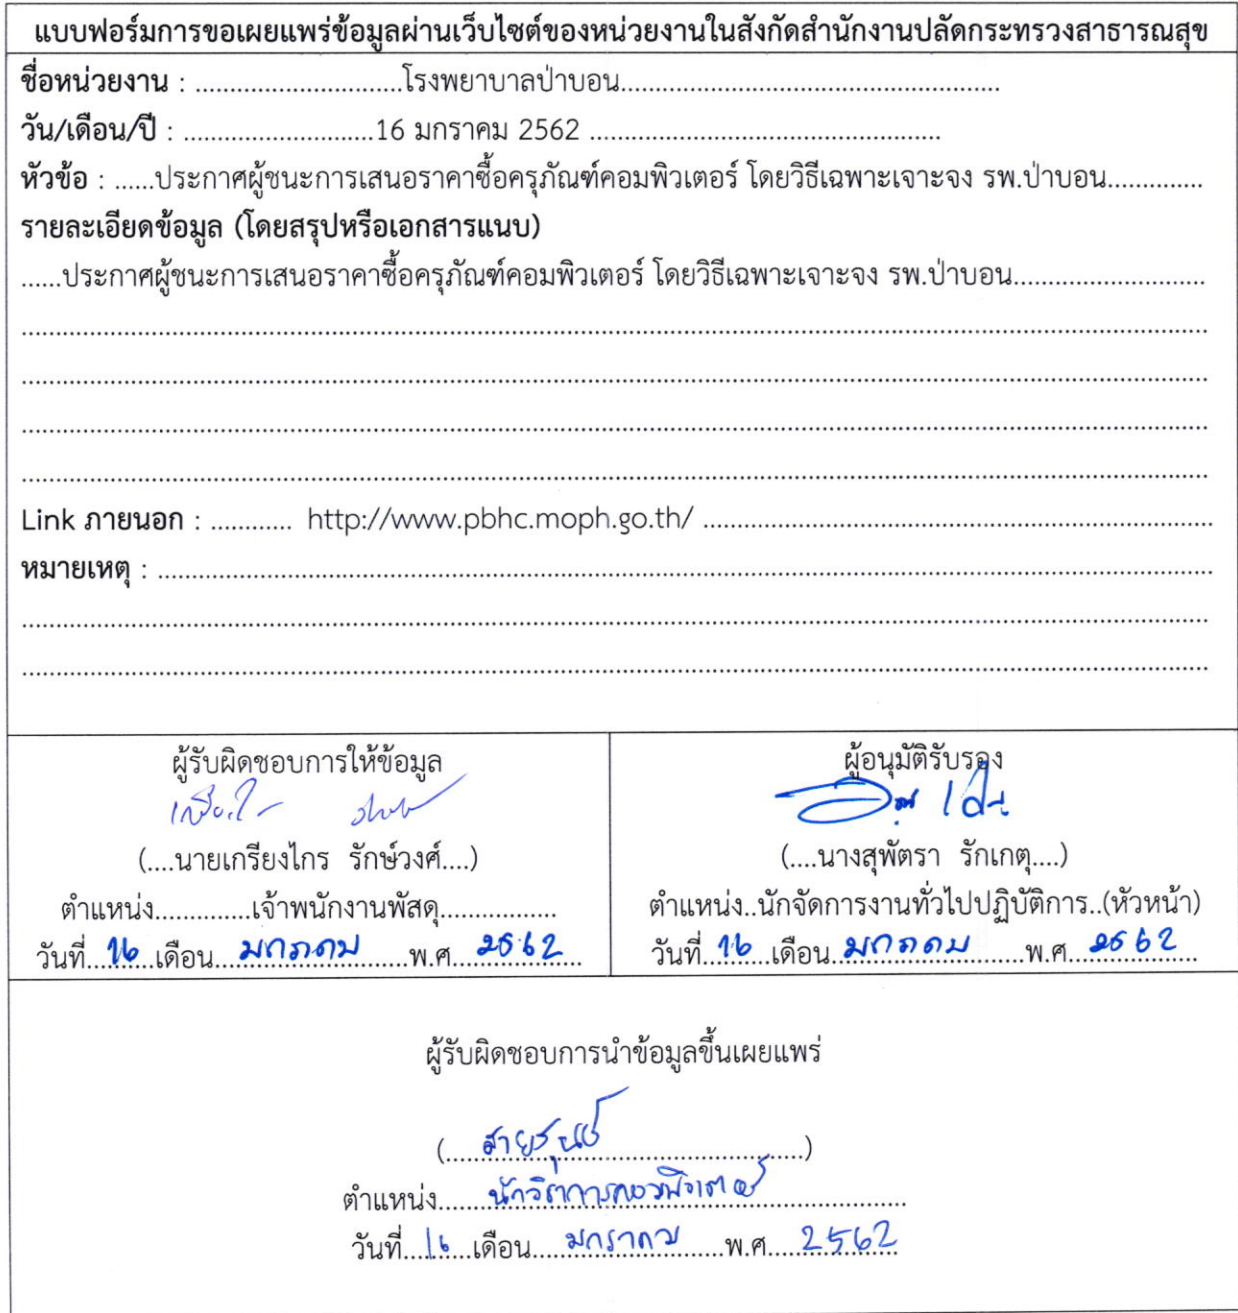 แบบฟอร์มการขอเผยแพร่ข้อมูลผ่านเว็บไซต์ของหน่วยงานในสังกัดสำนักงานปลัดกระทรวงสาธารณสุข
ชื่อหน่วยงาน : ..............................โรงพยาบาลป่าบอน.......................................................
วัน/เดือน/ปี : ...........................16 มกราคม 2562 ...................................................
หัวข้อ : ......ประกาศผู้ชนะการเสนอราคาซื้อครุภัณฑ์คอมพิวเตอร์ โดยวิธีเฉพาะเจาะจง รพ.ป่าบอน..............
รายละเอียดข้อมูล (โดยสรุปหรือเอกสารแนบ)
......ประกาศผู้ชนะการเสนอราคาซื้อครุภัณฑ์คอมพิวเตอร์ โดยวิธีเฉพาะเจาะจง รพ.ป่าบอน............................
Link ภายนอก : ............ http://www.pbhc.moph.go.th/ ..........................................................................
หมายเหตุ : ..........................................................................................................................
ผู้รับผิดชอบการให้ข้อมูล
(....นายเกรียงไกร รักษ์วงศ์....)
ตำแหน่ง..............เจ้าพนักงานพัสดุ.................
วันที่..16..เดือน..มกราคม..พ.ศ..2562..
ผู้อนุมัติรับรอง
(....นางสุพัตรา รักเกตุ....)
ตำแหน่ง..นักจัดการงานทั่วไปปฏิบัติการ..(หัวหน้า)
วันที่..16..เดือน..มกราคม..พ.ศ..2562..
ผู้รับผิดชอบการนำข้อมูลขึ้นเผยแพร่
ตำแหน่ง......นักวิชาการคอมพิวเตอร์......
วันที่..16..เดือน..มกราคม..พ.ศ..2562..